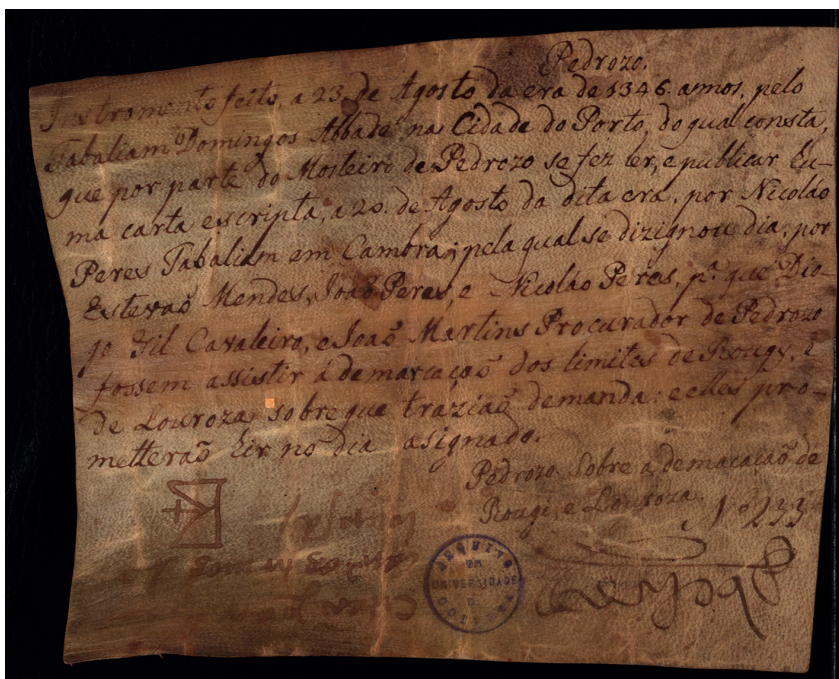 Pedrozo.
Instromento feito, a 23 de Agosto da era de 1346 annos, pelo
Tabaliam Domingos Abbade na Cidade do Porto, do qual consta,
que por parte do Mosteiro de Pedrozo se fez ler, e publicar hu-
ma carta escripta, a 20. de Agosto da dita era, por Nicoláo
Peres Tabaliam em Cambra; pela qual se dizignou dia, por
Estevaõ Mendes, Joaõ Peres, e Nicoláo Peres, pª. que Dio-
go Gil Cavaleiro, e Joaõ Martins Procurador de Pedrozo
fossem assistir á demarcaçaõ dos limites de Rougy, e
de Louroza, sobre que traziaõ demanda: e elles pro-
metteraõ hir no dia asignado.
Pedrozo Sobre a demacacaõ de
Rougi, e Louroza. Nº 233
UNIVERSIDADE